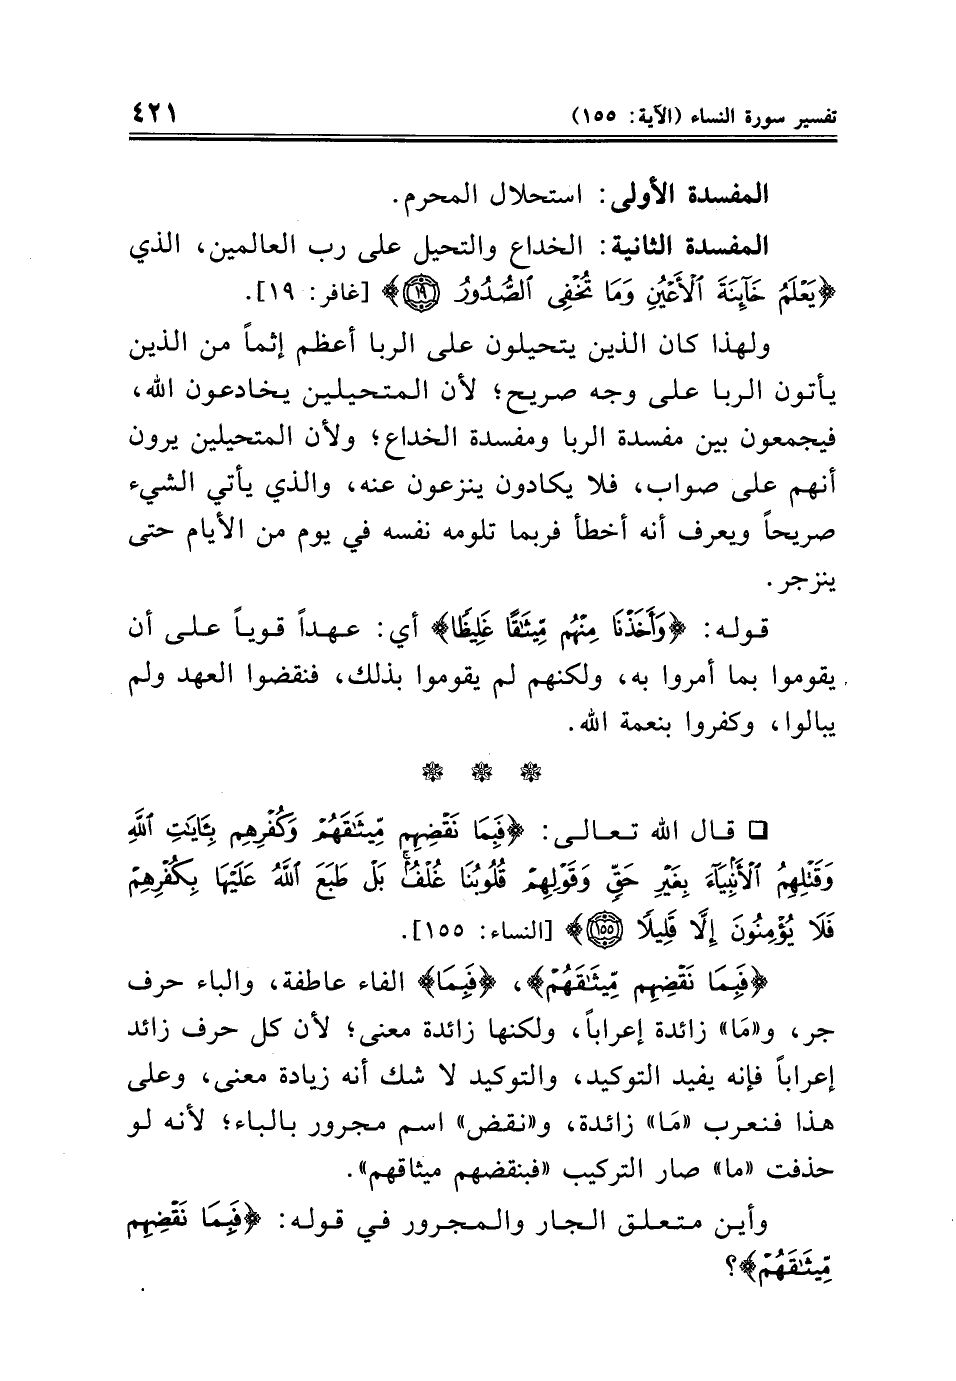 تفسير سورة النساء (الآية: ١٥٥) ٤٢١
المفسدة الأولى: استحلال المحرم.
المفسدة الثانية: الخداع والتحيل على رب العالمين، الذي
﴿يَعْلَمُ خَآئِنَةَ ٱلْأَعْيُنِ وَمَا تُخْفِى ٱلصُّدُورُ ١٩﴾ [غافر: ١٩].
ولهذا كان الذين يتحيلون على الربا أعظم إثماً من الذين
يأتون الربا على وجه صريح؛ لأن المتحيلين يخادعون الله،
فيجمعون بين مفسدة الربا ومفسدة الخداع؛ ولأن المتحيلين يرون
أنهم على صواب، فلا يكادون ينزعون عنه، والذي يأتي الشيء
صريحاً ويعرف أنه أخطأ فربما تلومه نفسه في يوم من الأيام حتى
ينزجر.
قوله: ﴿وَأَخَذْنَا مِنْهُم مِّيثَٰقًا غَلِيظًا﴾ أي: عهداً قوياً على أن
يقوموا بما أمروا به، ولكنهم لم يقوموا بذلك، فنقضوا العهد ولم
يبالوا، وكفروا بنعمة الله.
❁ ❁ ❁
❑ قال الله تعالى: ﴿فَبِمَا نَقْضِهِم مِّيثَٰقَهُمْ وَكُفْرِهِم بِـَٔايَٰتِ ٱللَّهِ
وَقَتْلِهِمُ ٱلْأَنۢبِيَآءَ بِغَيْرِ حَقٍّ وَقَوْلِهِمْ قُلُوبُنَا غُلْفٌۢ ۚ بَلْ طَبَعَ ٱللَّهُ عَلَيْهَا بِكُفْرِهِمْ
فَلَا يُؤْمِنُونَ إِلَّا قَلِيلًا ١٥٥﴾ [النساء: ١٥٥].
﴿فَبِمَا نَقْضِهِم مِّيثَٰقَهُمْ﴾، ﴿فَبِمَا﴾ الفاء عاطفة، والباء حرف
جر، و«مَا» زائدة إعراباً، ولكنها زائدة معنى؛ لأن كل حرف زائد
إعراباً فإنه يفيد التوكيد، والتوكيد لا شك أنه زيادة معنى، وعلى
هذا فنعرب «مَا» زائدة، و«نقض» اسم مجرور بالباء؛ لأنه لو
حذفت «ما» صار التركيب «فبنقضهم ميثاقهم».
وأين متعلق الجار والمجرور في قوله: ﴿فَبِمَا نَقْضِهِم
مِّيثَٰقَهُمْ﴾؟